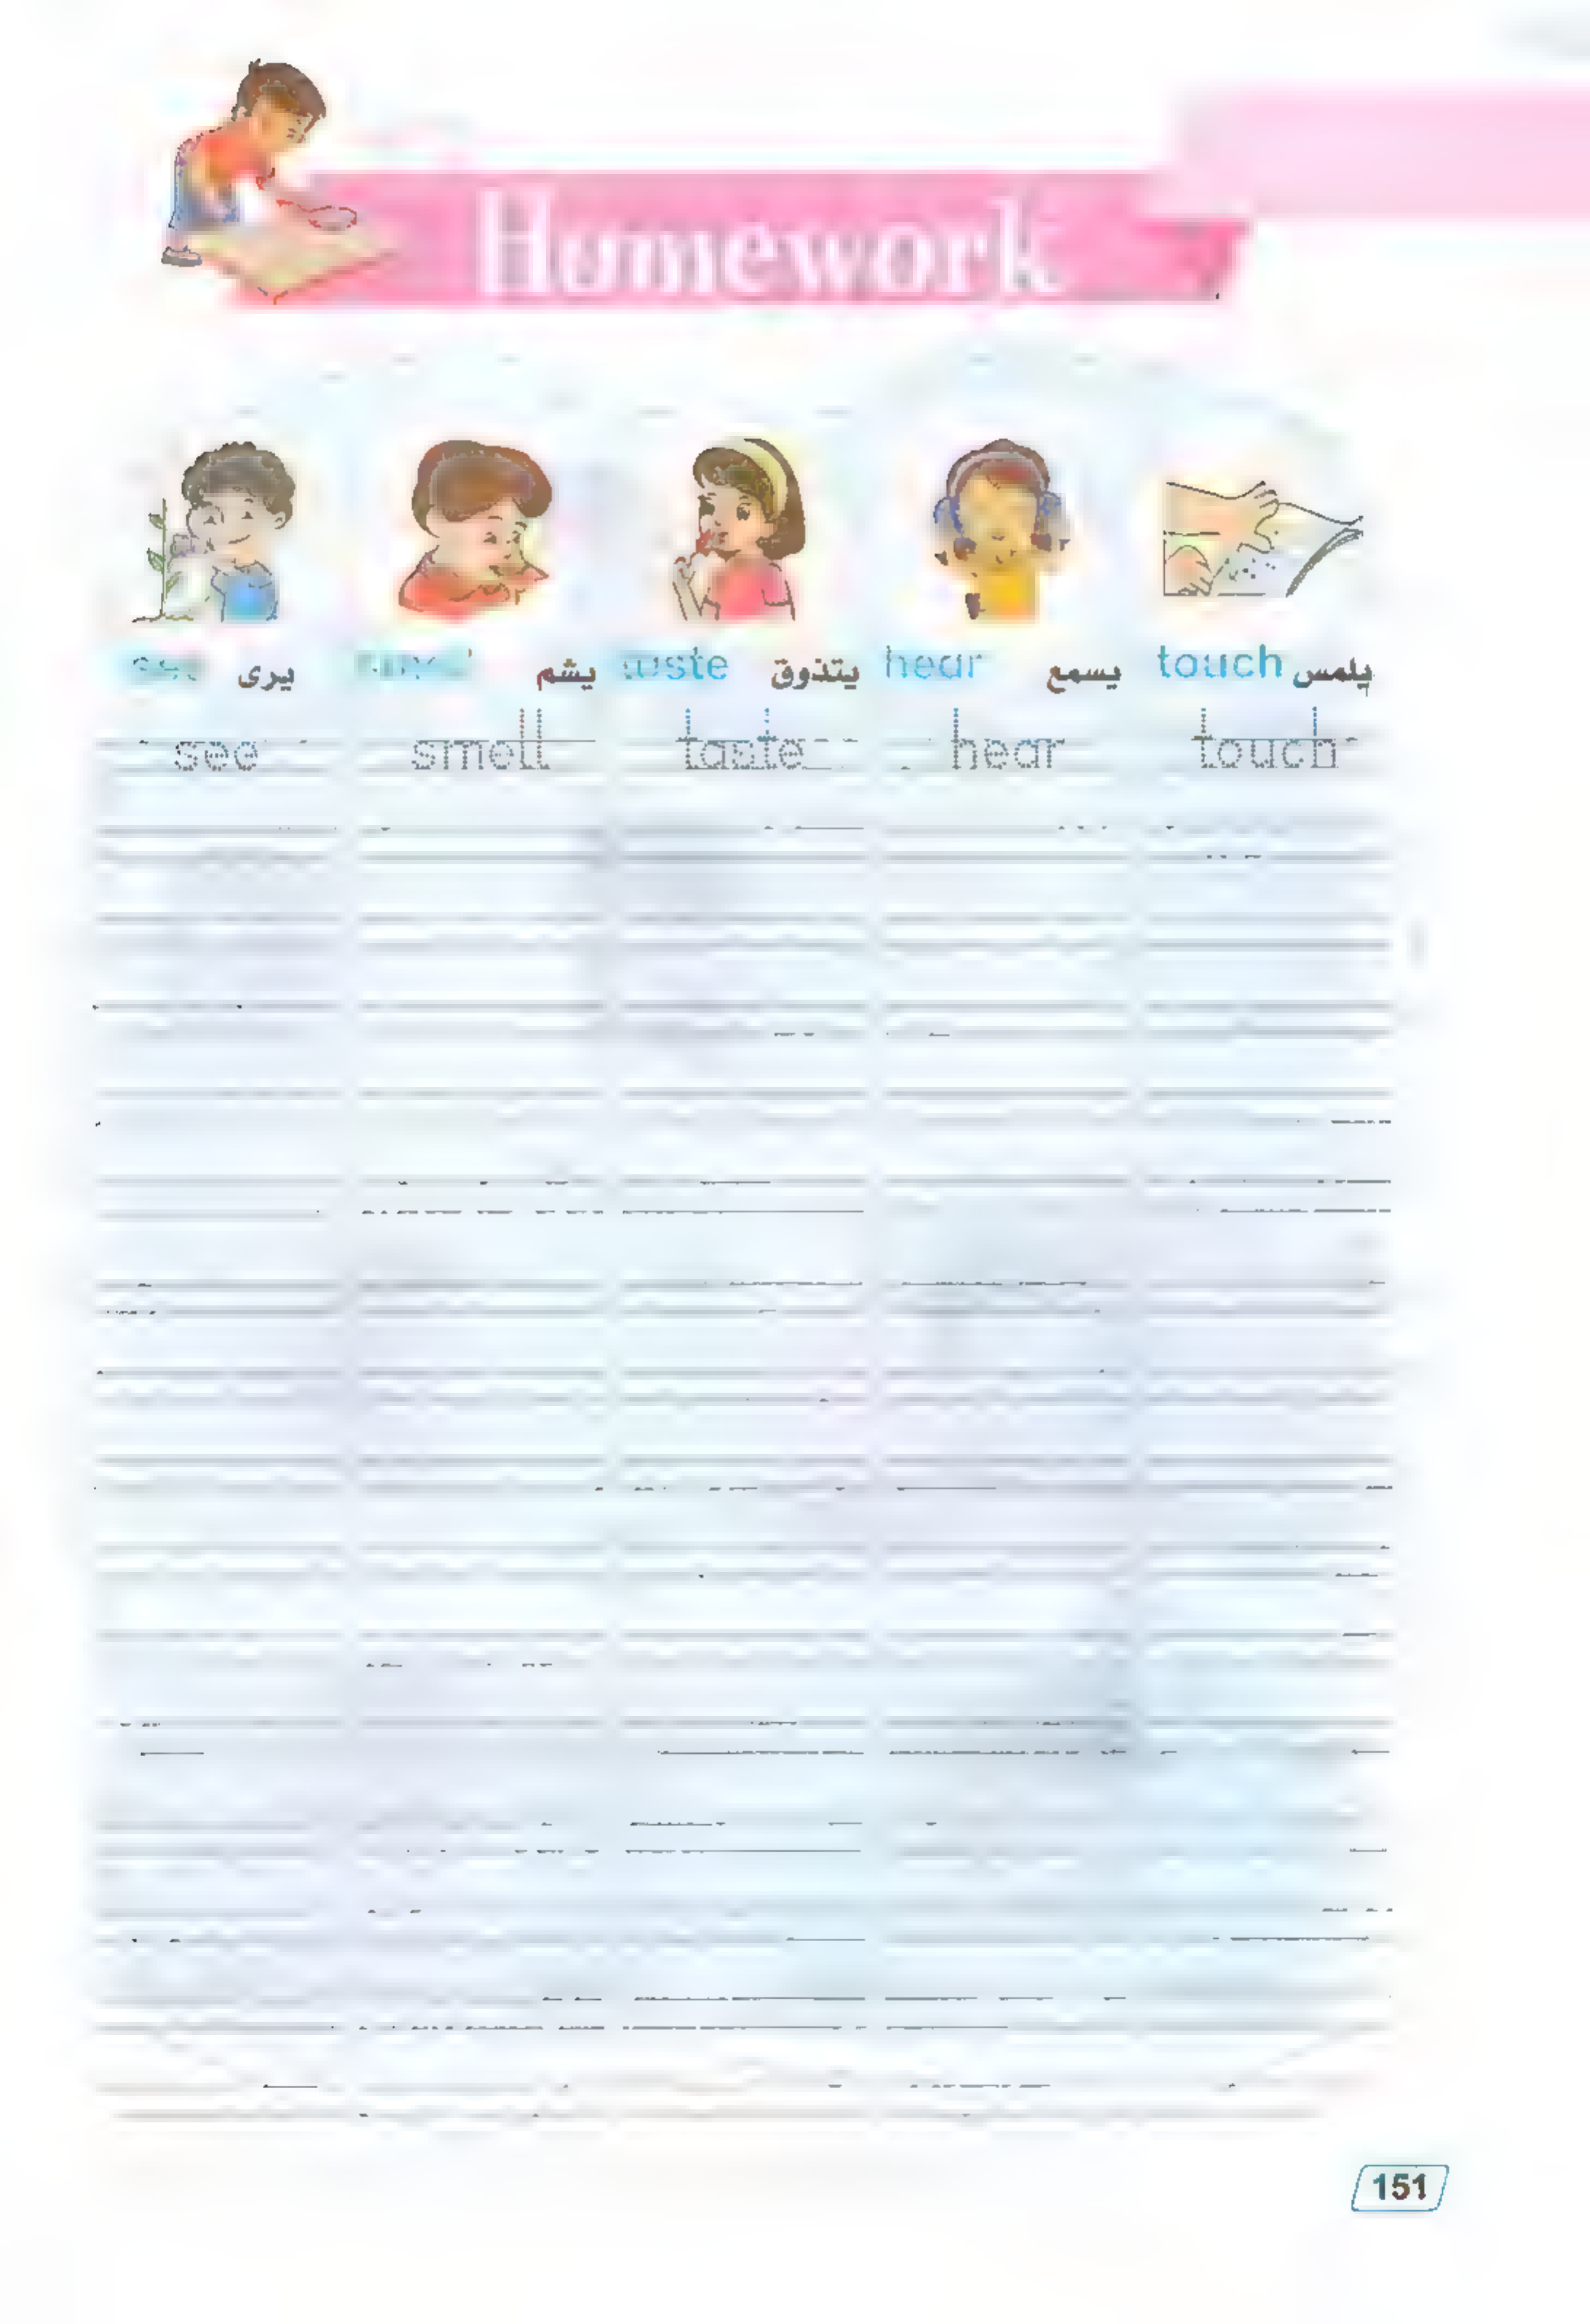 Homework
see يرى smell يشم taste يتذوق hear يسمع touch يلمس
see smell taste hear touch
151